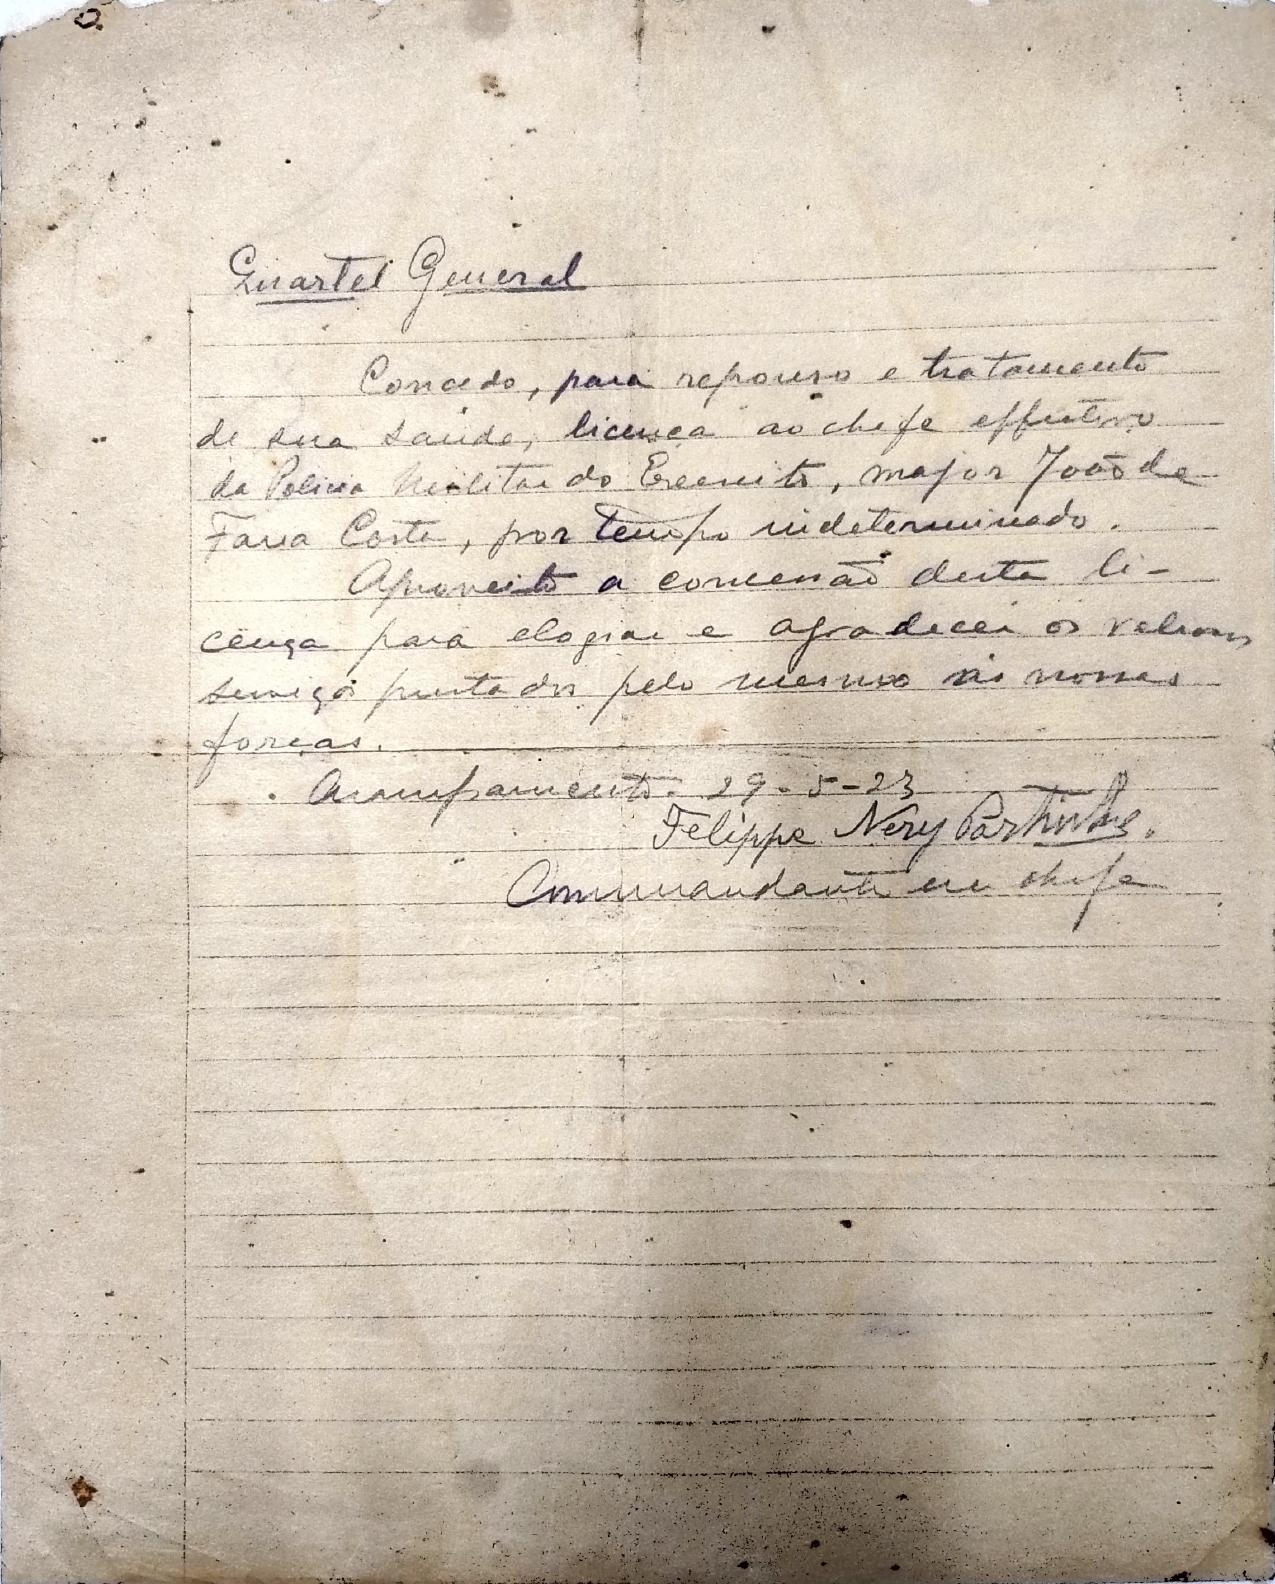 Quartel General
Concedo, para repouso e tratamento
de sua saúde, licença ao chefe effectivo
da Policia Militar do Exercito, major João de
Faria Costa, por tempo indeterminado.
Aproveito a concessão desta li-
cença para elogiar e agradecer os valiosos
serviços prestados pelo mesmo ás nossas
forças.
Acampamento. 29-5-23
Felippe Nery Portinho.
Commandante em chefe